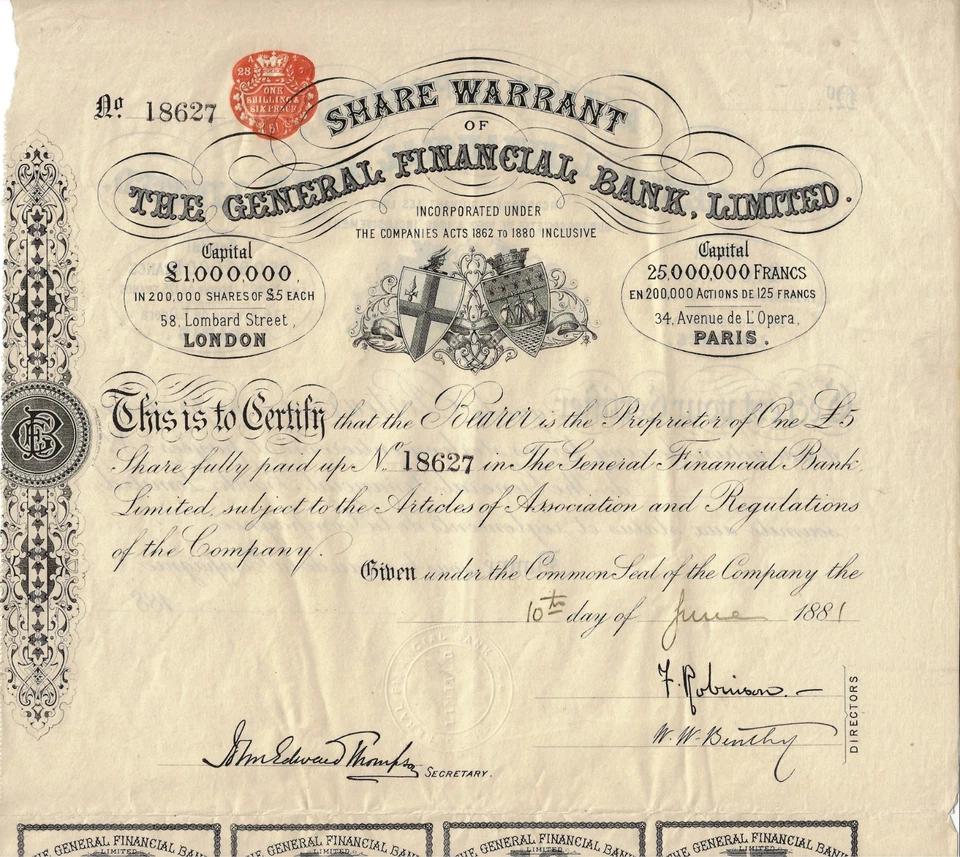 No. 18627
ONE
SHILLING &
SIX PENCE
SHARE WARRANT
OF
THE GENERAL FINANCIAL BANK, LIMITED.
INCORPORATED UNDER
THE COMPANIES ACTS 1862 TO 1880 INCLUSIVE
Capital
£1,000,000,
IN 200,000 SHARES OF £5 EACH
58, Lombard Street,
LONDON
Capital
25,000,000 FRANCS
EN 200,000 ACTIONS DE 125 FRANCS
34, Avenue de L'Opera,
PARIS.
This is to Certify that the Bearer is the Proprietor of One £5
Share fully paid up No. 18627 in The General Financial Bank,
Limited, subject to the Articles of Association and Regulations
of the Company.
Given under the Common Seal of the Company the
10th day of June 1881
F. Robinson.
W. W. 
DIRECTORS
John Edward Thompson
SECRETARY.
THE GENERAL FINANCIAL BANK
LIMITED
THE GENERAL FINANCIAL BANK
LIMITED
THE GENERAL FINANCIAL BANK
LIMITED
THE GENERAL FINANCIAL BANK
LIMITED